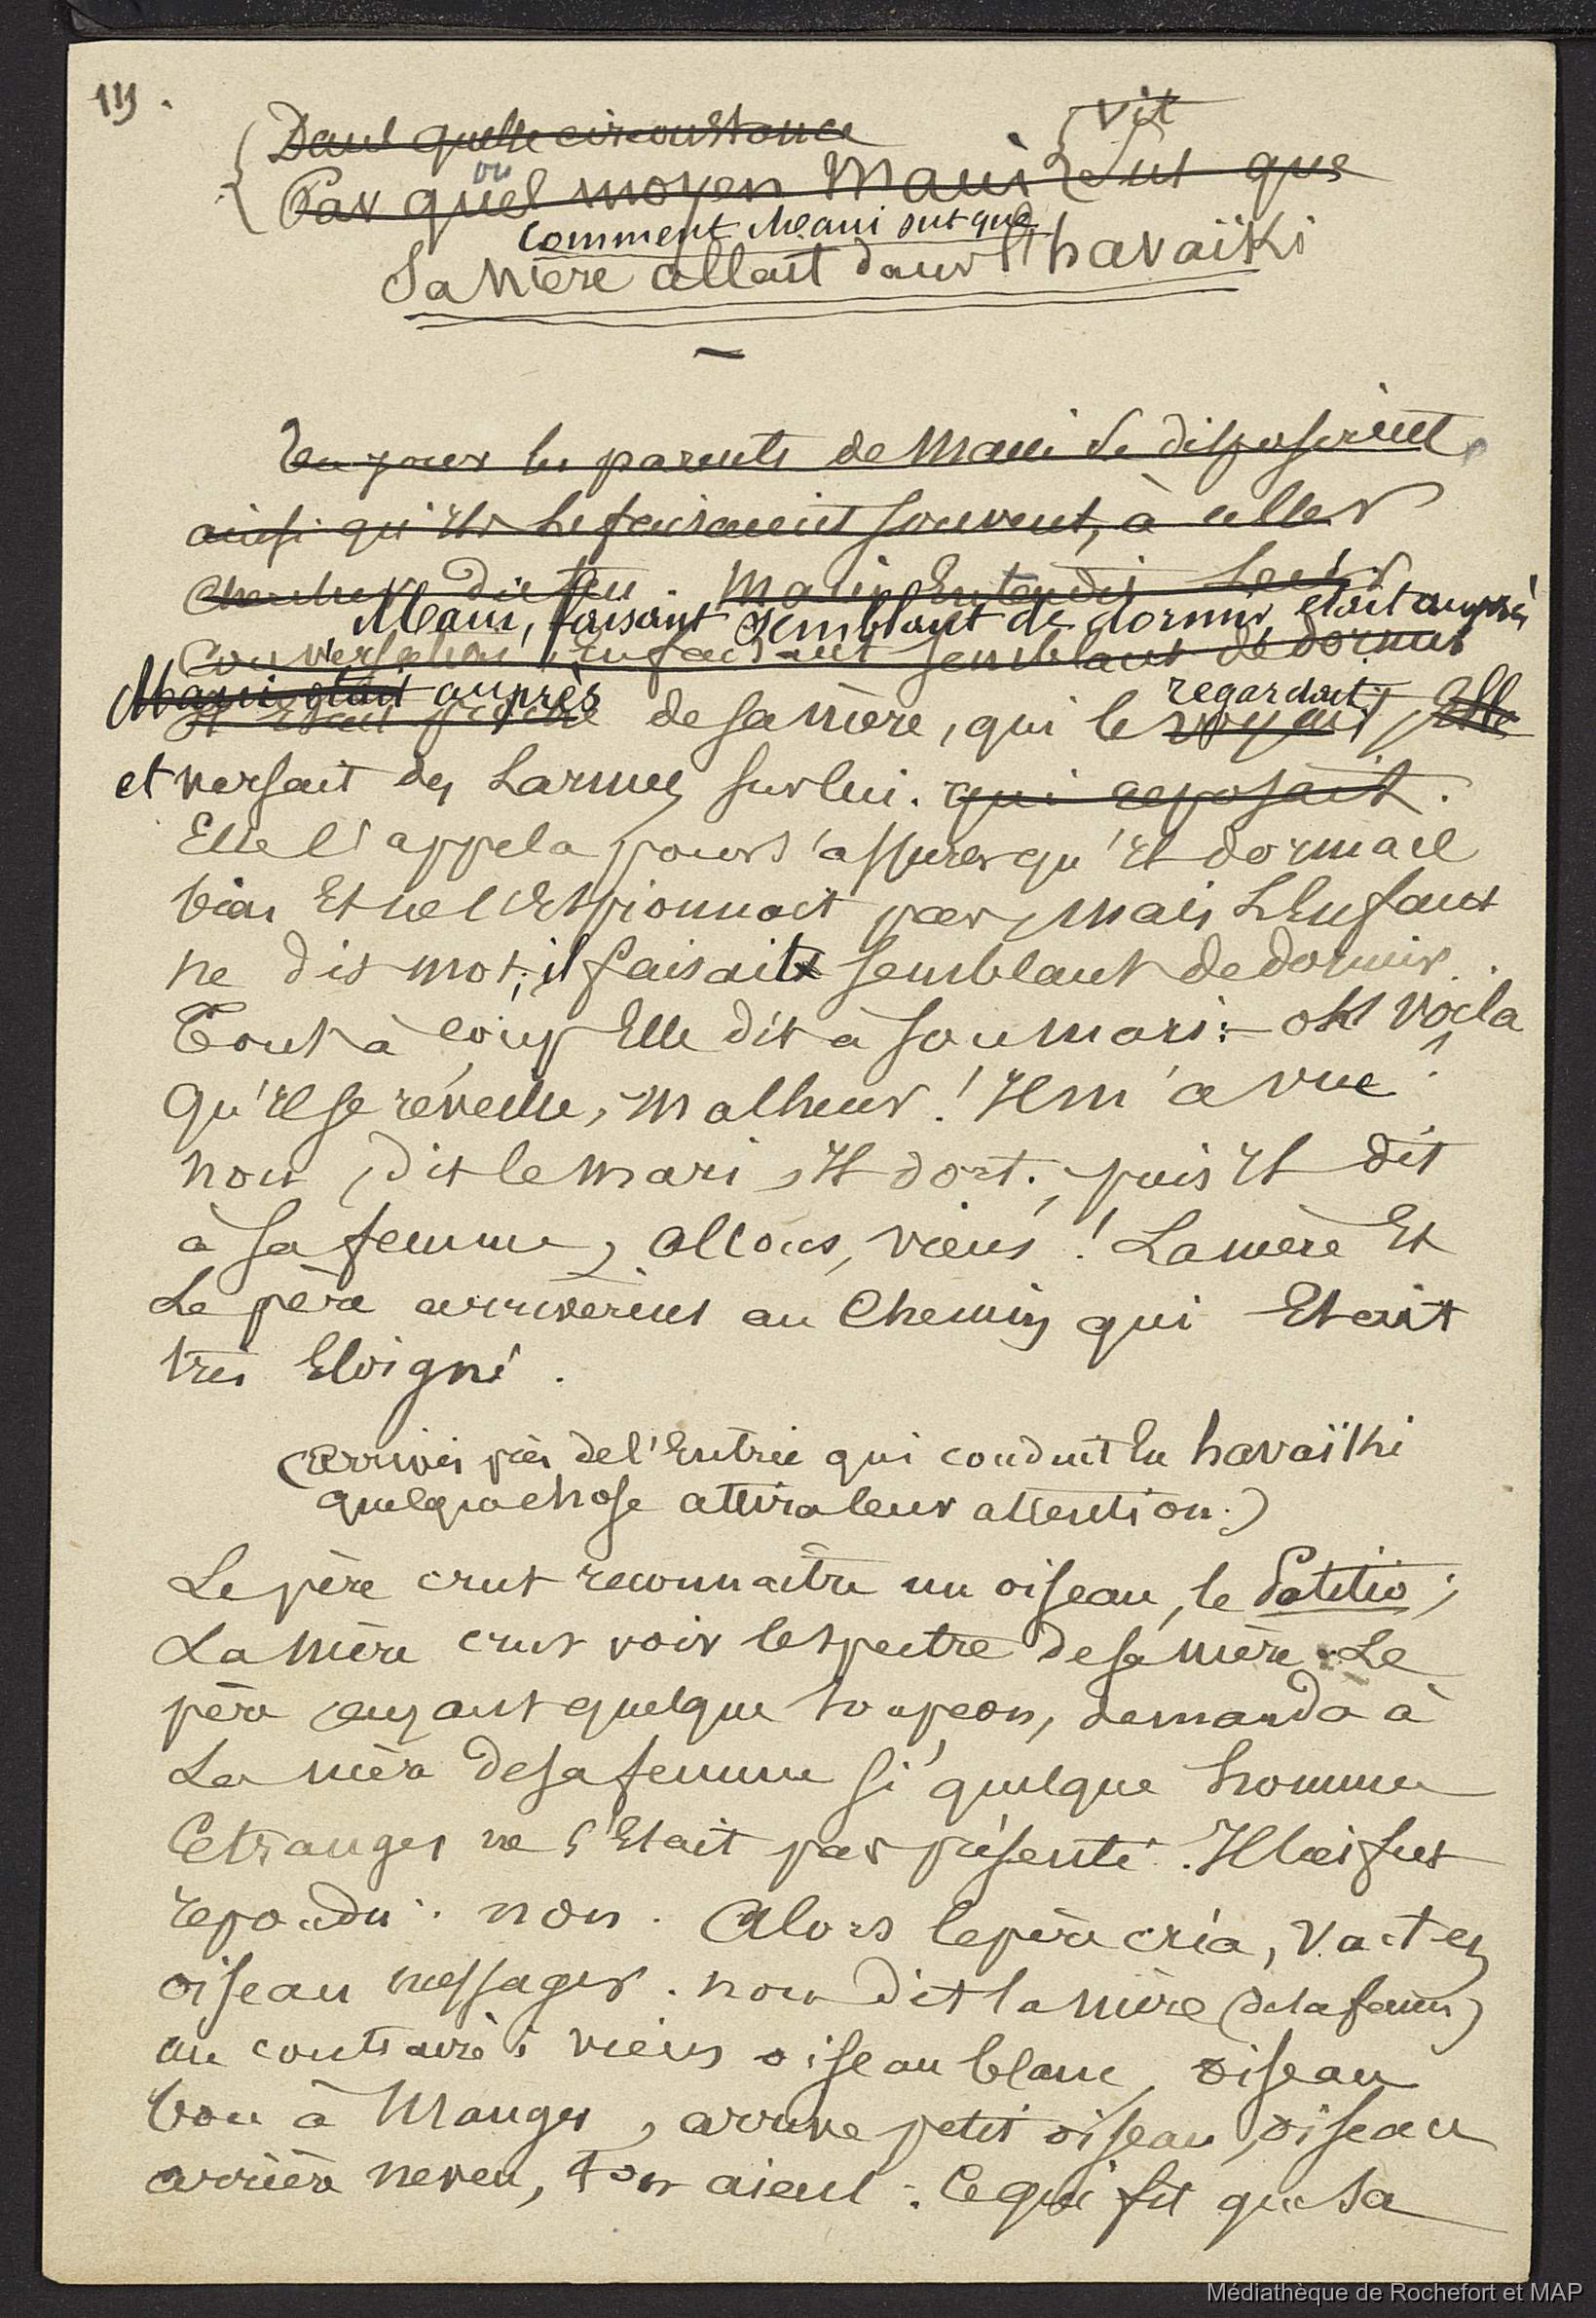 119.
Dans quelle circonstance
vit
ou
Par quel moyen Maui Sut que
Comment Maui sut que
Sa Mère allait dans l'havaïki
Un jour les parents de Maui se disposèrent,
ainsi qu'ils le faisaient souvent, à aller
chercher du feu. Maui Entendit Leur
Maui, faisant semblant de dormir, était auprès
Conversation En faisant semblant de dormir
Maui était auprès
regardait
Il Etait de sa mère, qui le voyait, Elle
et versait des Larmes sur lui. qui reposait.
Elle l'appela pour s'assurer qu'il dormait
bien Et ne l'Espionnait pas, mais L'Enfant
ne dit mot; il faisait semblant de dormir.
Tout à coup Elle dit à son mari: – oh! voila
qu'il se réveille, Malheur! Il m'a vue!
non, dit le mari, Il dort.; puis Il dit
à sa femme, allons, viens! La mère Et
Le père arrivèrent au Chemin qui Etait
très Eloigné.
(arrivés près de l'Entrée qui conduit En havaïki
quelque chose attira leur attention.)
Le père crut reconnaître un oiseau, le Patitio;
La Mère crut voir le spectre de sa mère. Le
père ayant quelque soupçon, demanda à
La mère de sa femme si quelque homme
Etranger ne s'Etait pas présenté. Il lui fut
répondu: non. Alors le père cria, Va-t-en
oiseau messager. non dit la mère (de la femme)
au contraire: viens oiseau blanc, oiseau
bon à Manger, arrive petit oiseau, oiseau
arrière neveu, ton aieul. Ce qui fit que sa
Médiathèque de Rochefort et MAP